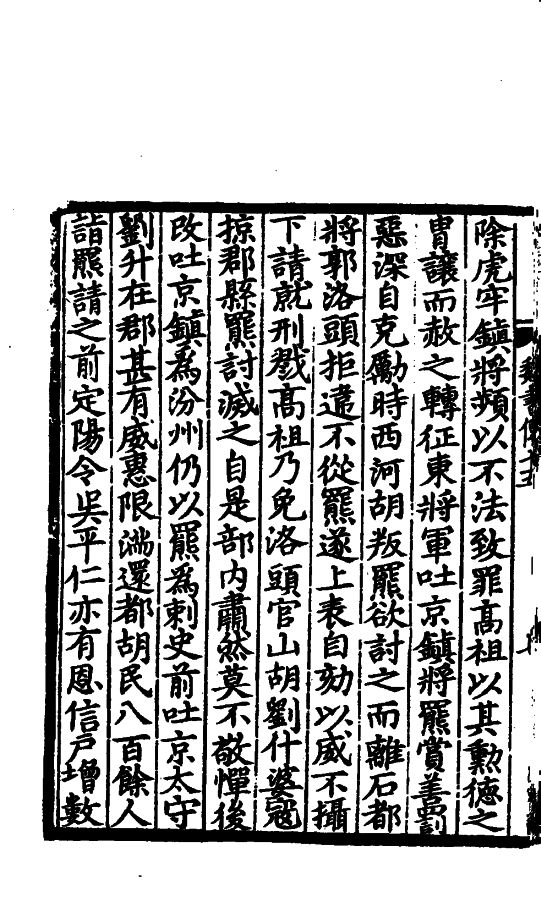 除虎牢鎮將頻以不法致罪髙祖以其勲德之
胄讓而赦之轉征東將軍吐京鎮將羆賞善罰
惡深自克勵時西河胡叛羆欲討之而離石都
將郭洛頭拒違不從羆遂上表自劾以威不攝
下請就刑戮髙祖乃免洛頭官山胡劉什婆寇
掠郡縣羆討滅之自是部内肅然莫不敬憚後
改吐京鎮爲汾州仍以羆爲刺史前吐京太守
劉升在郡甚有威惠限滿還都胡民八百餘人
詣羆請之前定陽令吳平仁亦有恩信戸增數